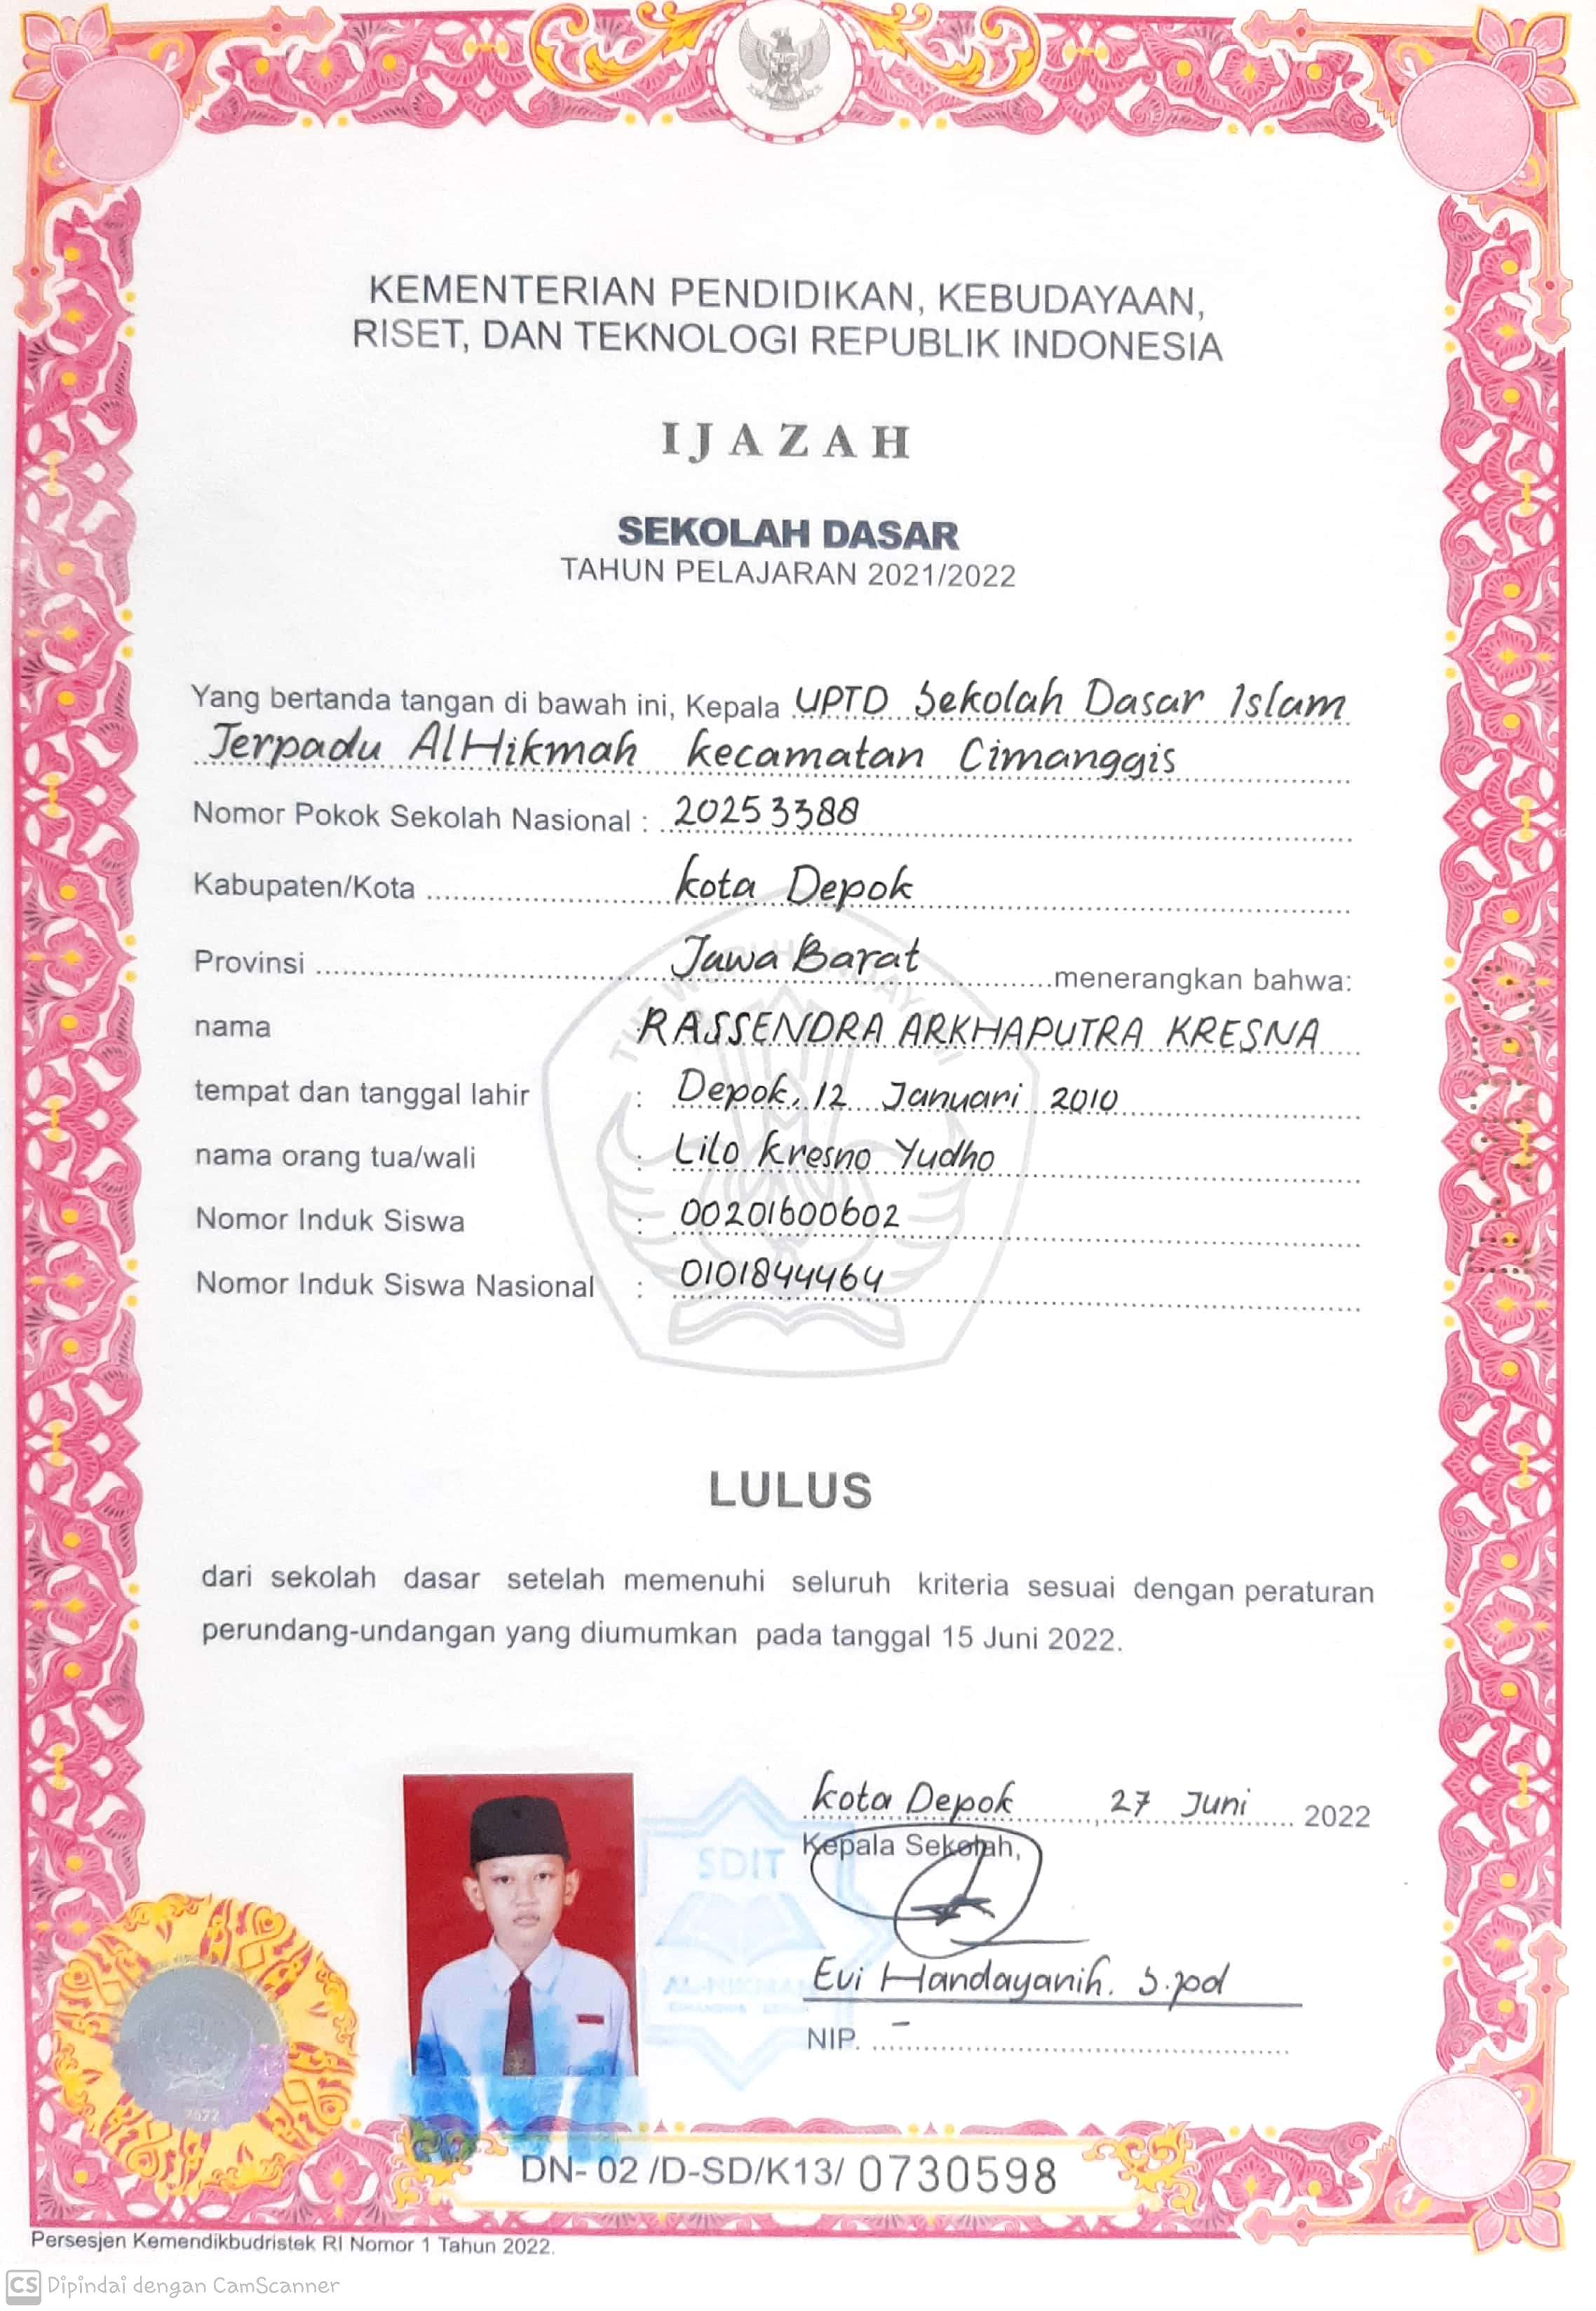 KEMENTERIAN PENDIDIKAN, KEBUDAYAAN,
RISET, DAN TEKNOLOGI REPUBLIK INDONESIA
IJAZAH
SEKOLAH DASAR
TAHUN PELAJARAN 2021/2022
Yang bertanda tangan di bawah ini, Kepala UPTD Sekolah Dasar Islam
Terpadu AlHikmah kecamatan Cimanggis
Nomor Pokok Sekolah Nasional : 20253388
Kabupaten/Kota kota Depok
Provinsi Jawa Barat menerangkan bahwa:
nama : RASSENDRA ARKHAPUTRA KRESNA
tempat dan tanggal lahir : Depok, 12 Januari 2010
nama orang tua/wali : Lilo Kresno Yudho
Nomor Induk Siswa : 00201600602
Nomor Induk Siswa Nasional : 0101844464
LULUS
dari sekolah dasar setelah memenuhi seluruh kriteria sesuai dengan peraturan
perundang-undangan yang diumumkan pada tanggal 15 Juni 2022.
kota Depok, 27 Juni 2022
Kepala Sekolah,
SDIT
AL-HIKMAH
Evi Handayanih. S.pd
NIP. -
2022
DN- 02 /D-SD/K13/ 0730598
Persesjen Kemendikbudristek RI Nomor 1 Tahun 2022.
CS Dipindai dengan CamScanner